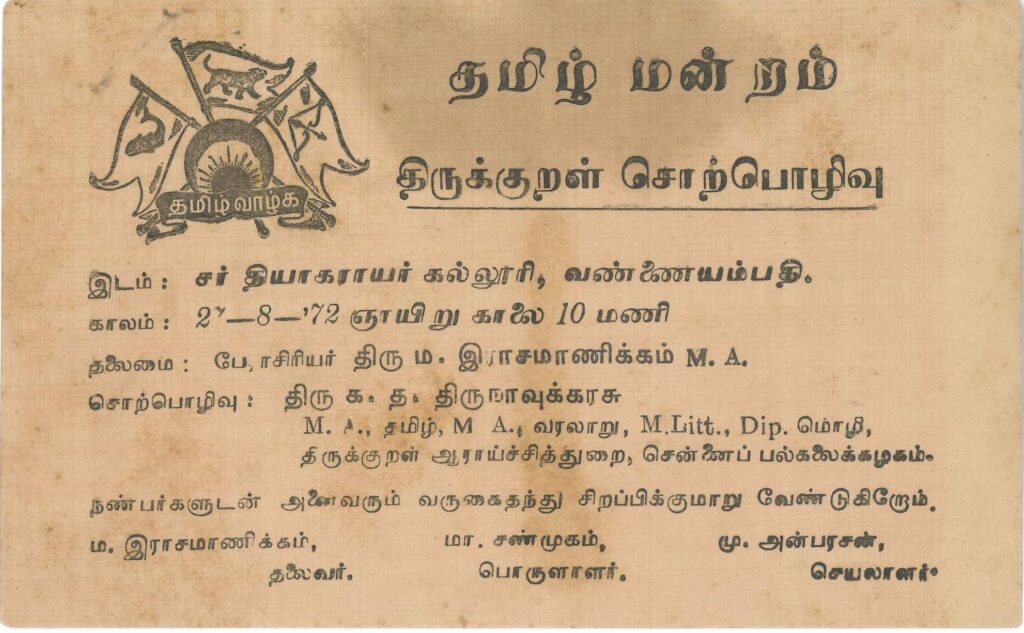 தமிழ் மன்றம்
தமிழ் வாழ்க
திருக்குறள் சொற்பொழிவு
இடம் : சர் தியாகராயர் கல்லூரி, வண்ணையம்பதி.
காலம் : 27—8—'72 ஞாயிறு காலை 10 மணி
தலைமை : பேராசிரியர் திரு ம. இராசமாணிக்கம் M. A.
சொற்பொழிவு : திரு க. த. திருநாவுக்கரசு
M. A., தமிழ், M A., வரலாறு, M.Litt., Dip. மொழி,
திருக்குறள் ஆராய்ச்சித்துறை, சென்னைப் பல்கலைக்கழகம்.
நண்பர்களுடன் அனைவரும் வருகைதந்து சிறப்பிக்குமாறு வேண்டுகிறோம்.
ம. இராசமாணிக்கம், மா. சண்முகம், மு. அன்பரசன்,
தலைவர். பொருளாளர். செயலாளர்.